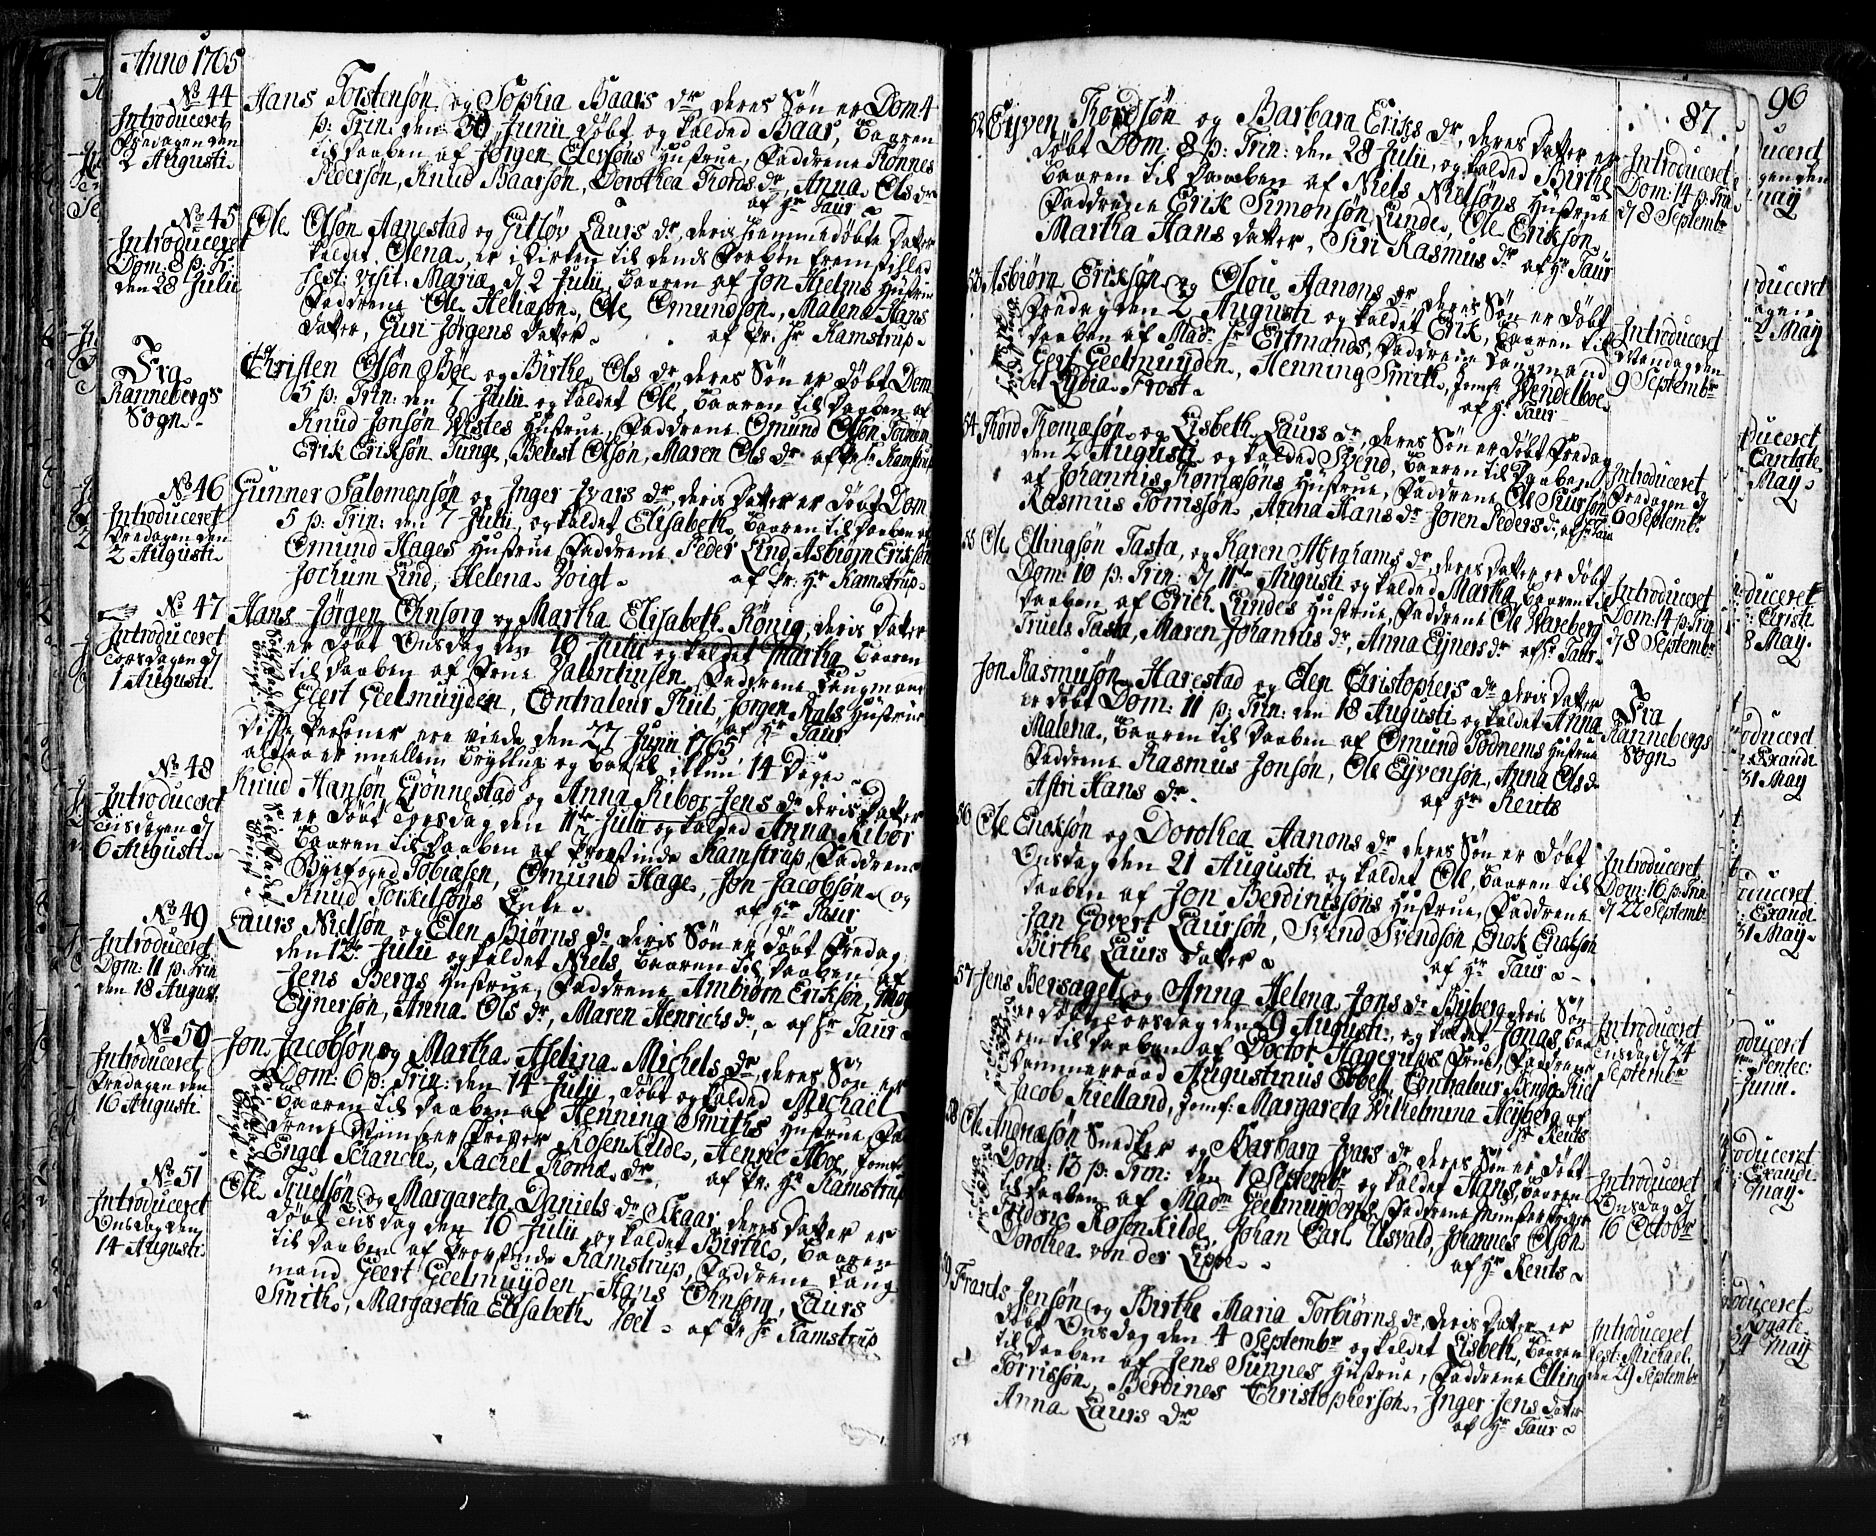 Anno 1765
No 44
Introduceret
Fredagen den
2 Augusti
Hans Torstensøn og Sophia Baars dr deres Søn er Dom: 4
p: Trin: den 30 Junii døbt og kaldet Baar, baaren
til daaben af Jørgen Elersøns Hustrue, Faddrene Rønnes
Pedersøn, Knud Baarsøn, Dorothea Thords dr, Anna Ols dr
af Hr Taur
No 45
Introduceret
Dom: 8 p: Tr:
den 28 Julii
Ole Olsøn Aanestad og Gitløv Laurs dr, deris hiemmedøbte Datter
kaldet Olena, er i Kirken til dends Daaben fremstilled
Fest: Visit: Mariæ d 2 Julii, baaren af Jon Hielms Hustrue
Faddrene Ole Heliasøn, Ole Omundsøn, Malena Hans
datter, Guri Jørgens datter. af Pr: Hr Kamstrup
Fra
Rannebergs
Sogn
Christen Olsøn Bøe og Birthe Ols dr deres Søn er døbt Dom
5 p: Trin: den 7 Julii og kaldet Ole, baaren til daaben af
Knud Jonsøn Westes Hustrue, Faddrene Omund Olsøn Todnem
Erik Eriksøn Tunge, Belest Olsøn, Maren Ols dr af Pr: Hr Kamstrup
No 46
Introduceret
Fredagen den
2 Augusti
Gunner Salomonsøn og Inger Ivars dr, deris datter er døbt Dom
5 p: Trin: den 7 Julii, og kaldet Elisabeth, baaren til daaben af
Omund Hages Hustrue Faddrene Peder Lind Asbiørn Eriksøn
Jochum Lind, Helena Voigt. af Pr: Hr Kamstrup
No 47
Introduceret
Torsdagen d
1 Augusti
Hans Jørgen Ohnsorg og Martha Elisabeth König, deris datter
er døbt Onsdag den 10 Julii og kaldet Martha baaren
til daaben af Frue Valentinsen, Faddrene Laugmand
Geert Geelmuyden, Contraleur Kiil Jørgen Kals Hustrue
af Hr Taur
Disse Personer ere viede den 27 Junii 1765
altsaa er imellem Bryllup og Barsel ikkun 14 Dage
No 48
Introduceret
Tiisdagen d
6 Augusti
Knud Hansøn Grønnestad og Anna Kibor Jens dr deris datter
er døbt Torsdag den 11te Julii og kaldet Anna Kibor
baaren til daaben af Provstinde Kamstrup, Faddrene
Byefoged Tobiasen, Omund Hage, Jon Jacobsøn og
Knud Torkilsøns Enke af Hr Taur
No 49
Introduceret
Dom: 11 p: Trin
den 18 August
Laurs Nielsøn og Elen Biørns dr deris Søn er døbt Fredag
den 12te Julii og kaldet Niels baaren til daaben af
Jens Bergs Hustrue, Faddrene Ambiørn Eriksøn,
Eynersøn, Anna Ols dr, Maren Henrichs dr, af Hr Taur
No 50
Introduceret
Fredagen den
16 Augusti
Jon Jacobsøn og Martha Aselina Michels dr, deres Søn er
Dom: 6 p: Trin: den 14 Julii, døbt og kaldet Michaël
baaren til daaben af Henning Smiths Hustrue Fad
drene Mønsterskriver Rosenkilde, Henric Aboe, Jomfr
Engel Schancke, Rachel Thomæ dr. af Pr: Hr Kamstrup
No 51
Introduceret
Onsdagen den
14 Augusti
Ole Truelsøn og Margareta Daniels dr Skaar, deres datter er
døbt Tiisdag den 16 Julii og kaldet Birthe, baaren
til daaben af Provstinde Kamstrup, Faddrene Laug
mand Geert Geelmuyden, Hans Ohnsorg, Laurs
Smith, Margaretha Elisabeth Voel af Pr Hr Kamstrup
87
52 Eyven Thordsøn og Barbara Eriks dr, deres datter er
døbt Dom: 8 p: Trin: den 28 Julii, og kaldet Birthe
baaren til daaben af Niels Nielsøns Hustrue
Faddrene Erik Simonsøn Lunde, Ole Eriksøn
Martha Hans datter, Siri Rasmus dr af Hr Taur
Introduceret
Dom: 14 p: Trin
d 8 Septembr
53 Asbiørn Eriksøn og Olou Aanons dr, deres Søn er døbt
Fredag den 2 Augusti og kaldet Erik, baaren til
daaben af Madr Hr Ertmands, Faddrene Laugmand
Geert Geelmuyden, Henning Smith, Jomfr Wendelboe
Lydia Frost af Hr Taur
Introduceret
Mandagen
9 Septembr
54 Thord Thomæsøn og Lisbeth Laurs dr, deres Søn er døbt Fredag
den 2 Augusti og kaldet Svend, baaren til Daaben
af Johannis Thomæsøns Hustrue, Faddrene Ole Siursøn
Rasmus Torrissøn, Anna Hans dr Jøren Peders dr, af Hr Taur
Introduceret
Fredagen d
6 Septembr
55 Ole Ellingsøn Tasta, og Karen Abrahams dr, deres datter er døbt
Dom: 10 p: Trin: d 11te Augusti og kaldet Martha baaren til
daaben af Erich Lundes Hustrue, Faddrene Ole Wareberg
Truels Tasta, Maren Johannis dr, Anna Eyners dr af Hr Taur
Introduceret
Dom: 14 p: Trin
d 8 Septembr
Jon Rasmusøn Harestad og Elen Christophers dr deris datter
er døbt Dom: 11 p: Trin: den 18 Augusti og kaldet Anna
Malena, baaren til daaben af Omund Todnems Hustrue
Faddrene Rasmus Jonsøn, Ole Eyvensøn, Anna Ols dr
Astri Hans dr. af Hr Reuts
Fra
Rannebergs
Sogn
56 Ole Enoksøn og Dorothea Aanons dr deres Søn er døbt
Onsdag den 21 Augusti og kaldet Ole, baaren til
daaben af Jon Berdinissøns Hustrue, Faddrene
Jan Govert Laursøn, Svend Svendsøn, Enok Enoksøn
Birthe Laurs datter af Hr Taur
Introduceret
Dom: 16 p: Trin
d 22 Septembr
57 Jens Bersaget og Anna Helena Jons dr Byberg deris Søn
er døbt Torsdag den 29 Augusti, og kaldet Jonas baa
ren til daaben af Doctor Hagerups Frue, Faddrene
Cammerraad Augustinus Ebbell, Contraleur Kiel
Jacob Kielland, Jomf: Margareta Wilhelmina Heyberg af
Hr Reuts
Introduceret
Tiisdag d 24
Septembr
58 Ole Andreæsøn Snedker og Barbara Ivars dr deres Søn er døbt
Dom: 13 p: Trin: den 1 Septembr og kaldet Hans baaren
til daaben af Madm Geelmuydens Faddrene Mønsterskriver
Frideric Rosenkilde, Johan Carl Usvald, Johannes Olsøn
Dorothea von der Lippe af Hr Reuts
Introduceret
Onsdag d
16 Octobr
59 Frants Jensøn og Birthe Maria Torbiørns dr, deris datter er
døbt Onsdag den 4 Septembr og kaldet Lisbeth, baaren
til daaben af Jens Sunnes Hustrue, Faddrene Elling
Torrissøn, Berdines Christophersøn, Inger Jens datter
Anna Laurs dr af Hr Taur
Introduceret
Fest: Michael.
den 29 Septembr
90